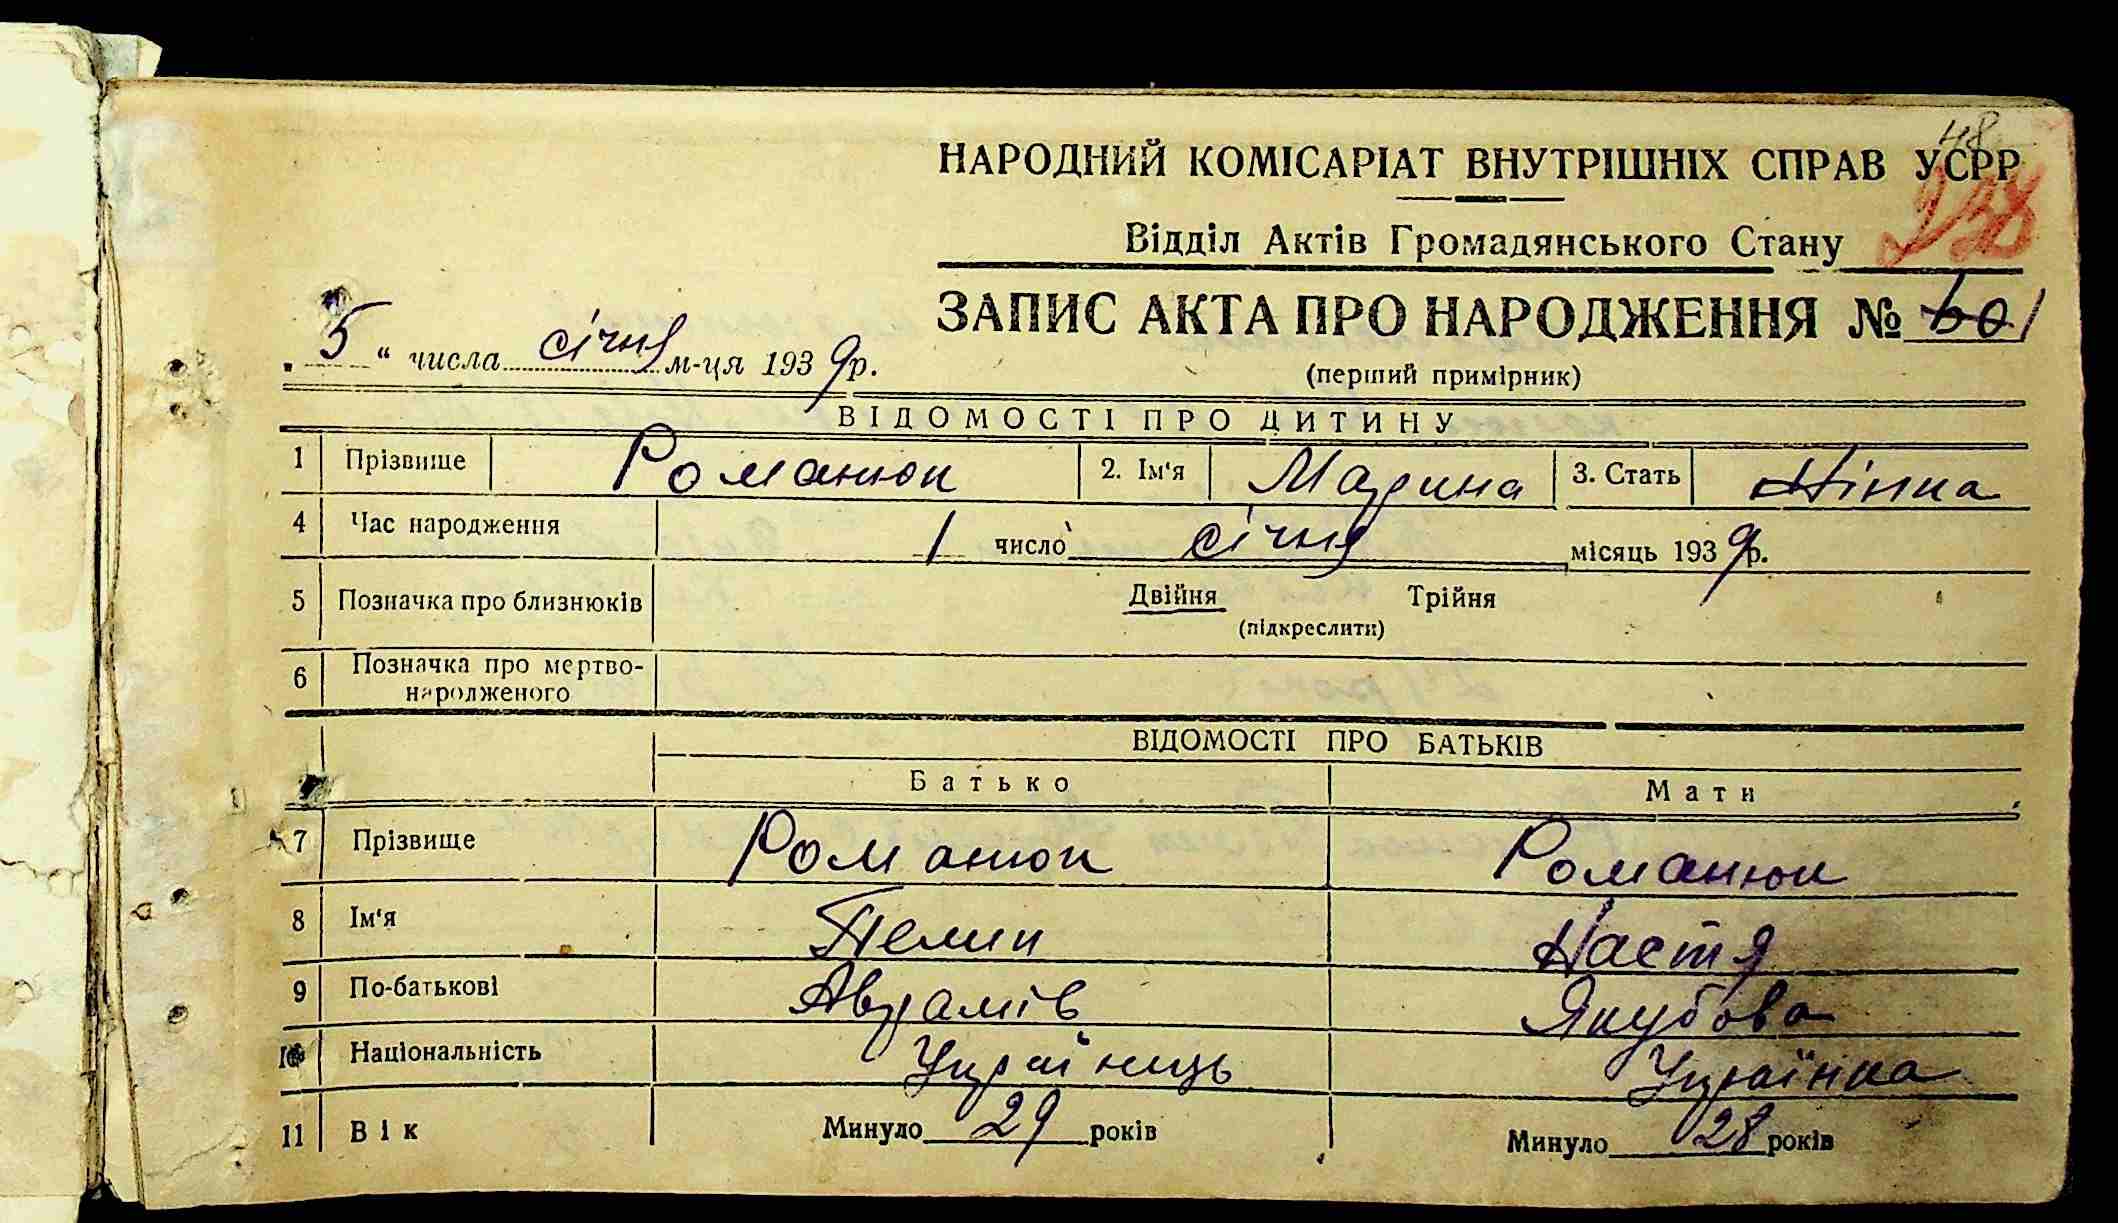 48
НАРОДНИЙ КОМІСАРІАТ ВНУТРІШНІХ СПРАВ УСРР
238
Відділ Актів Громадянського Стану
ЗАПИС АКТА ПРО НАРОДЖЕННЯ № 1
„ 5 “ числа січня м-ця 1939 р.
(перший примірник)
ВІДОМОСТІ ПРО ДИТИНУ
1 Прізвище Романюк 2. Ім'я Марина 3. Стать Жінка
4 Час народження 1 число січня місяць 1939 р.
5 Позначка про близнюків Двійня Трійня
(підкреслити)
6 Позначка про мертво-
народженого
ВІДОМОСТІ ПРО БАТЬКІВ
Батько Мати
7 Прізвище Романюк Романюк
8 Ім'я Настя
9 По-батькові Аврамів Якубова
10 Національність Українець Українка
11 Вік Минуло 29 років Минуло 28 років